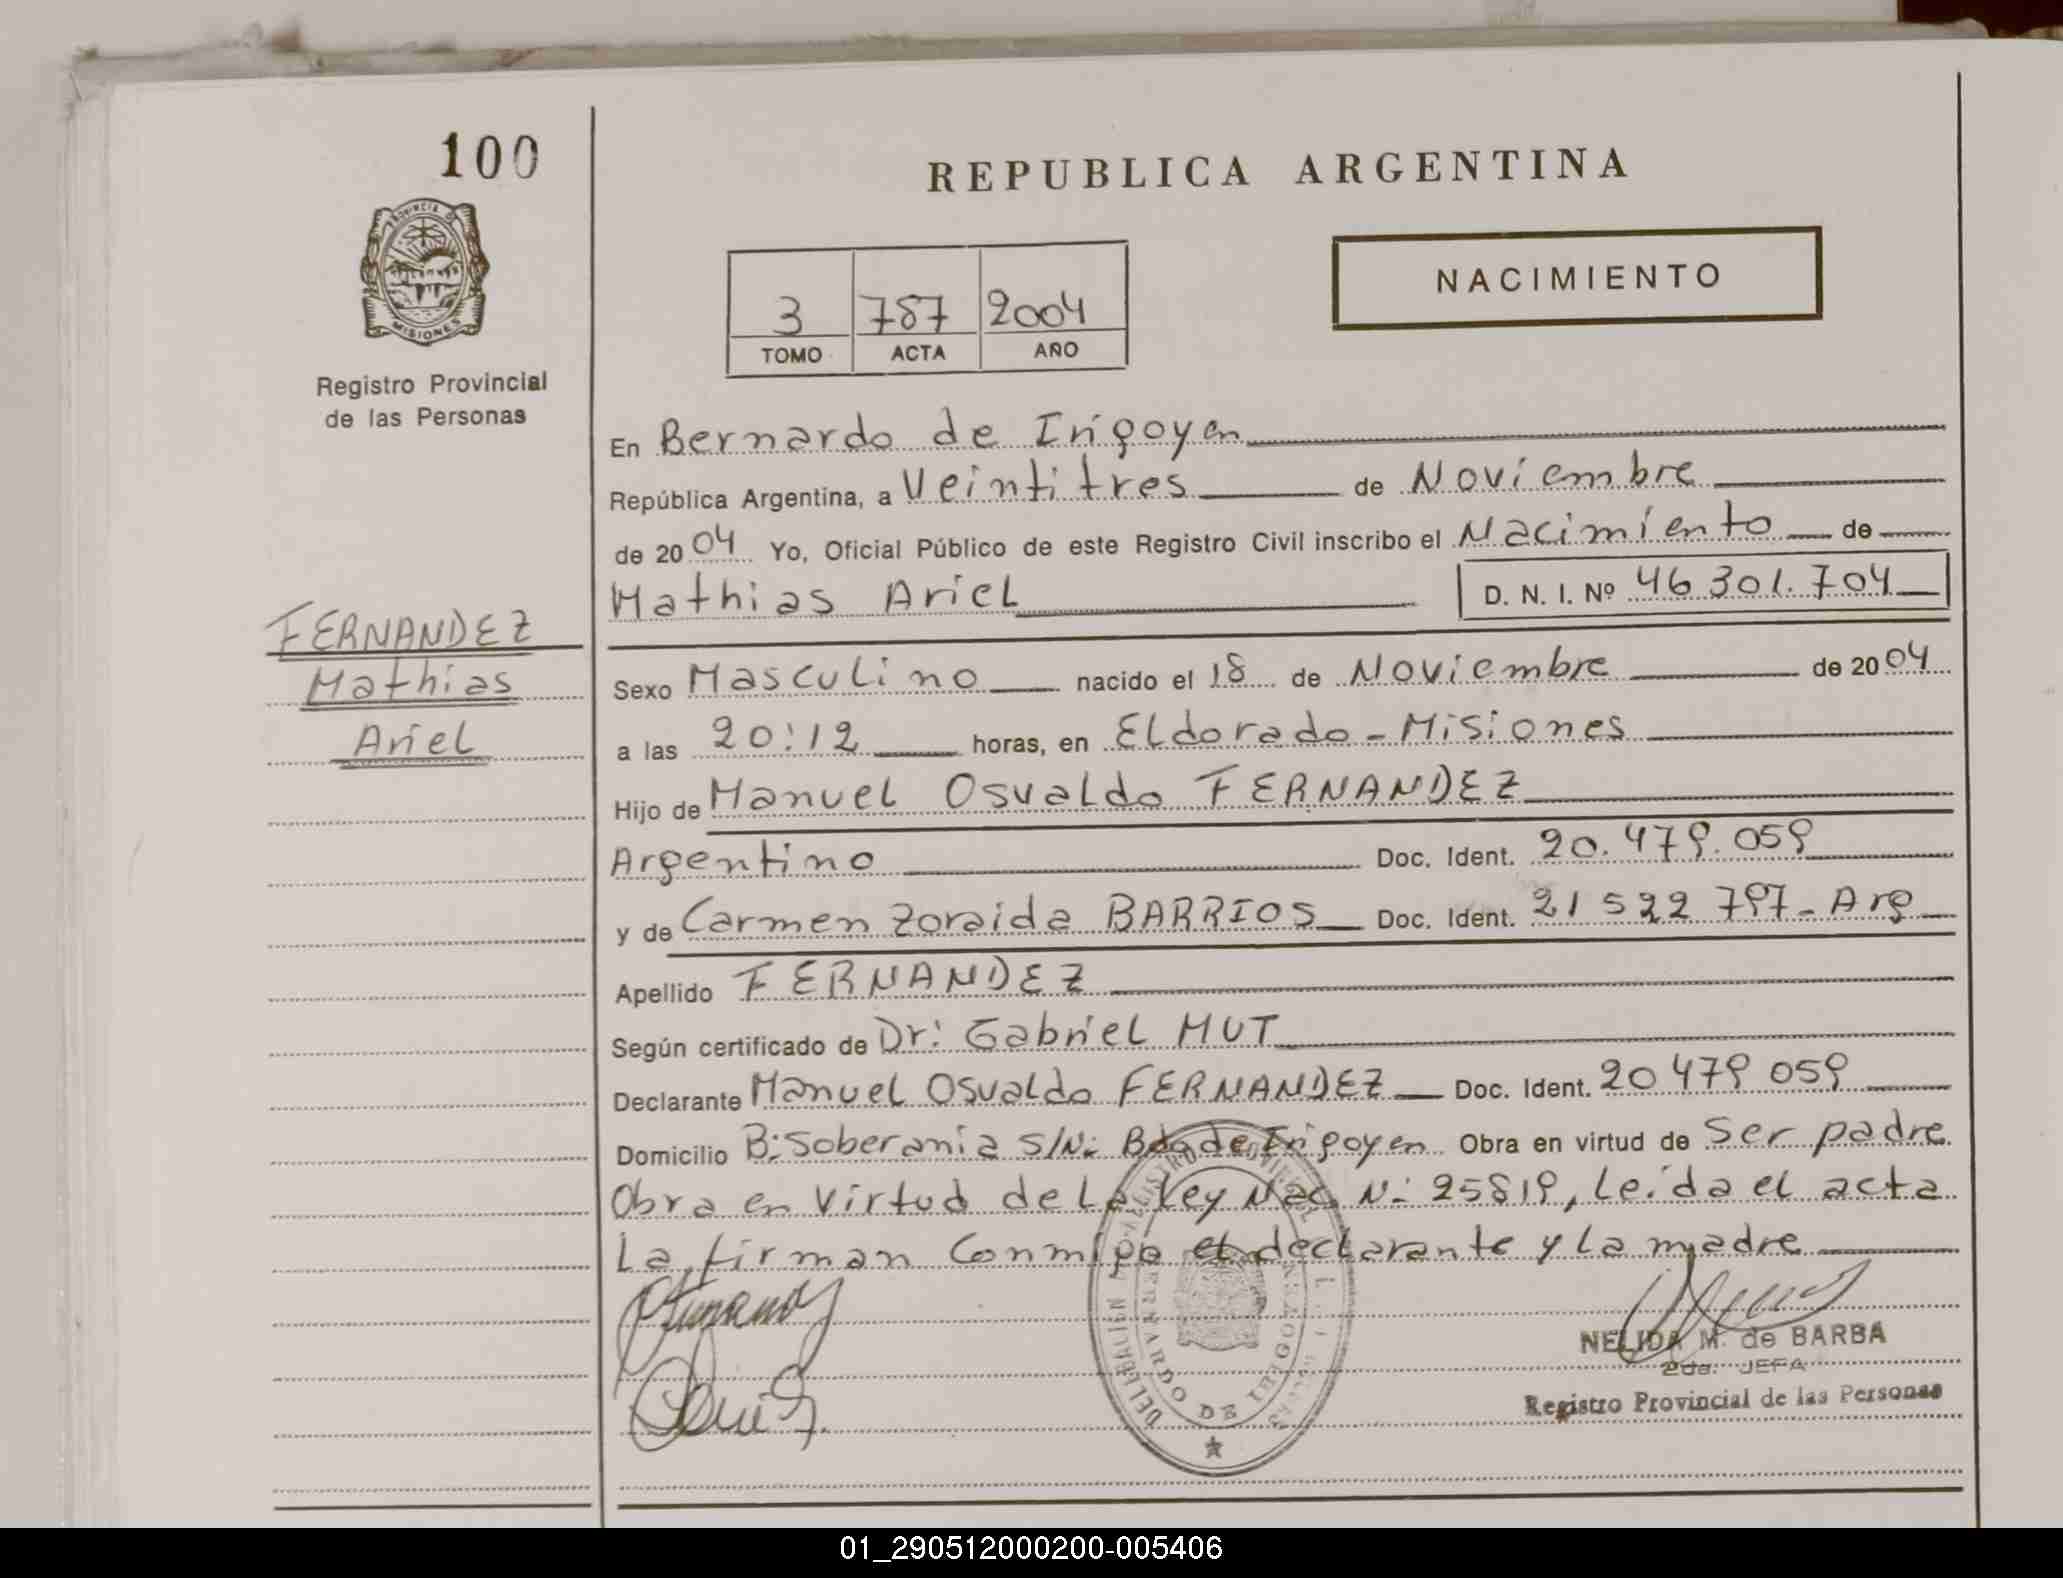 100
REPUBLICA ARGENTINA
PROVINCIA DE
MISIONES
NACIMIENTO
3 787 2004
TOMO ACTA AÑO
Registro Provincial
de las Personas
En Bernardo de Irigoyen
República Argentina, a Veintitres de Noviembre
de 2004 Yo, Oficial Público de este Registro Civil inscribo el Nacimiento de
Mathias Ariel D. N. I. Nº 46 301.704
FERNANDEZ
Mathias
Ariel
Sexo Masculino nacido el 18 de Noviembre de 2004
a las 20:12 horas, en Eldorado - Misiones
Hijo de Manuel Osvaldo FERNANDEZ
Argentino Doc. Ident. 20.479.059
y de Carmen Zoraida BARRIOS Doc. Ident. 21 522 797 - Arg
Apellido FERNANDEZ
Según certificado de Dr: Gabriel MUT
Declarante Manuel Osvaldo FERNANDEZ Doc. Ident. 20 479 059
Domicilio B: Soberania S/N: Bdo de Irigoyen Obra en virtud de Ser padre
Obra en Virtud de La Ley Nac N: 25819, Leida el acta
La firman Conmigo el declarante y La madre
BERNARDO DE IRIGOYEN
NELIDA M. de BARBA
2da. JEFA
Registro Provincial de las Personas
01_290512000200-005406